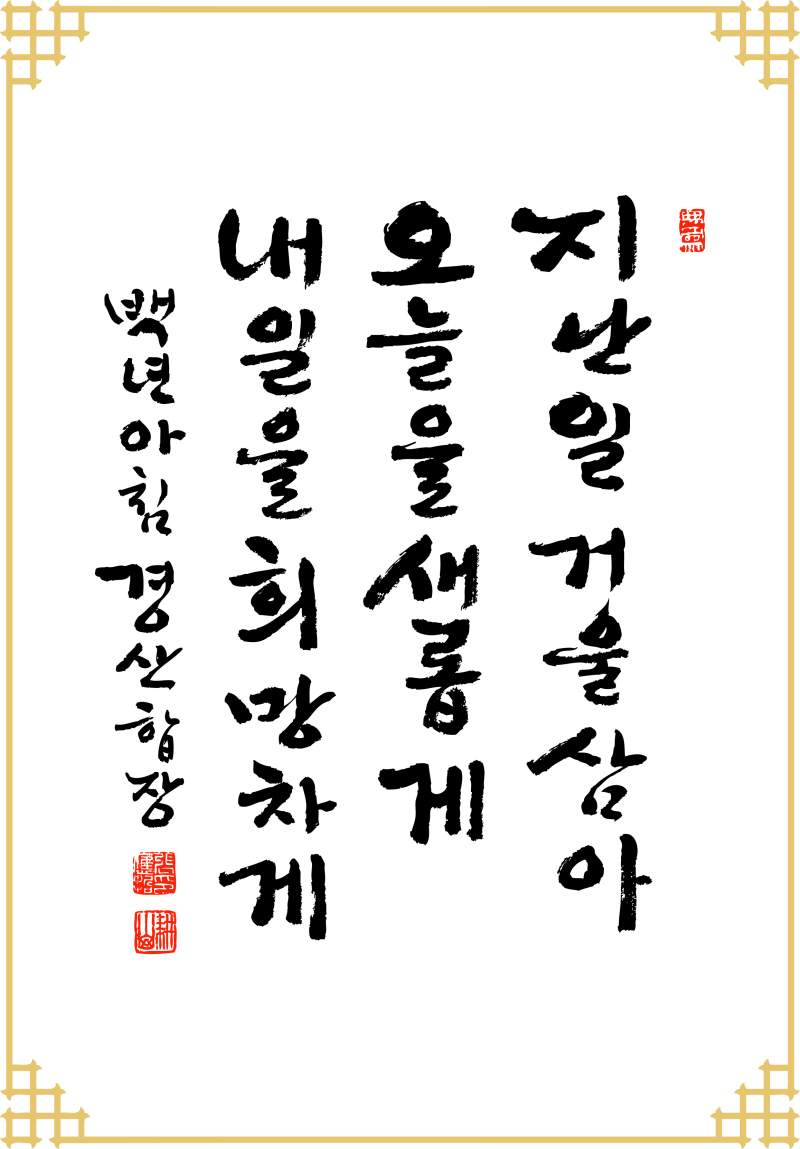 지난일 거울삼아
오늘을 새롭게
내일을 희망차게
백년아침 경산합장